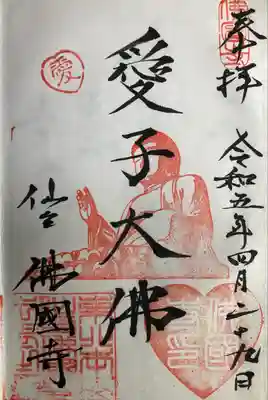 奉拝
令和五年四月二十九日
愛子大佛
愛
仙台 佛國寺